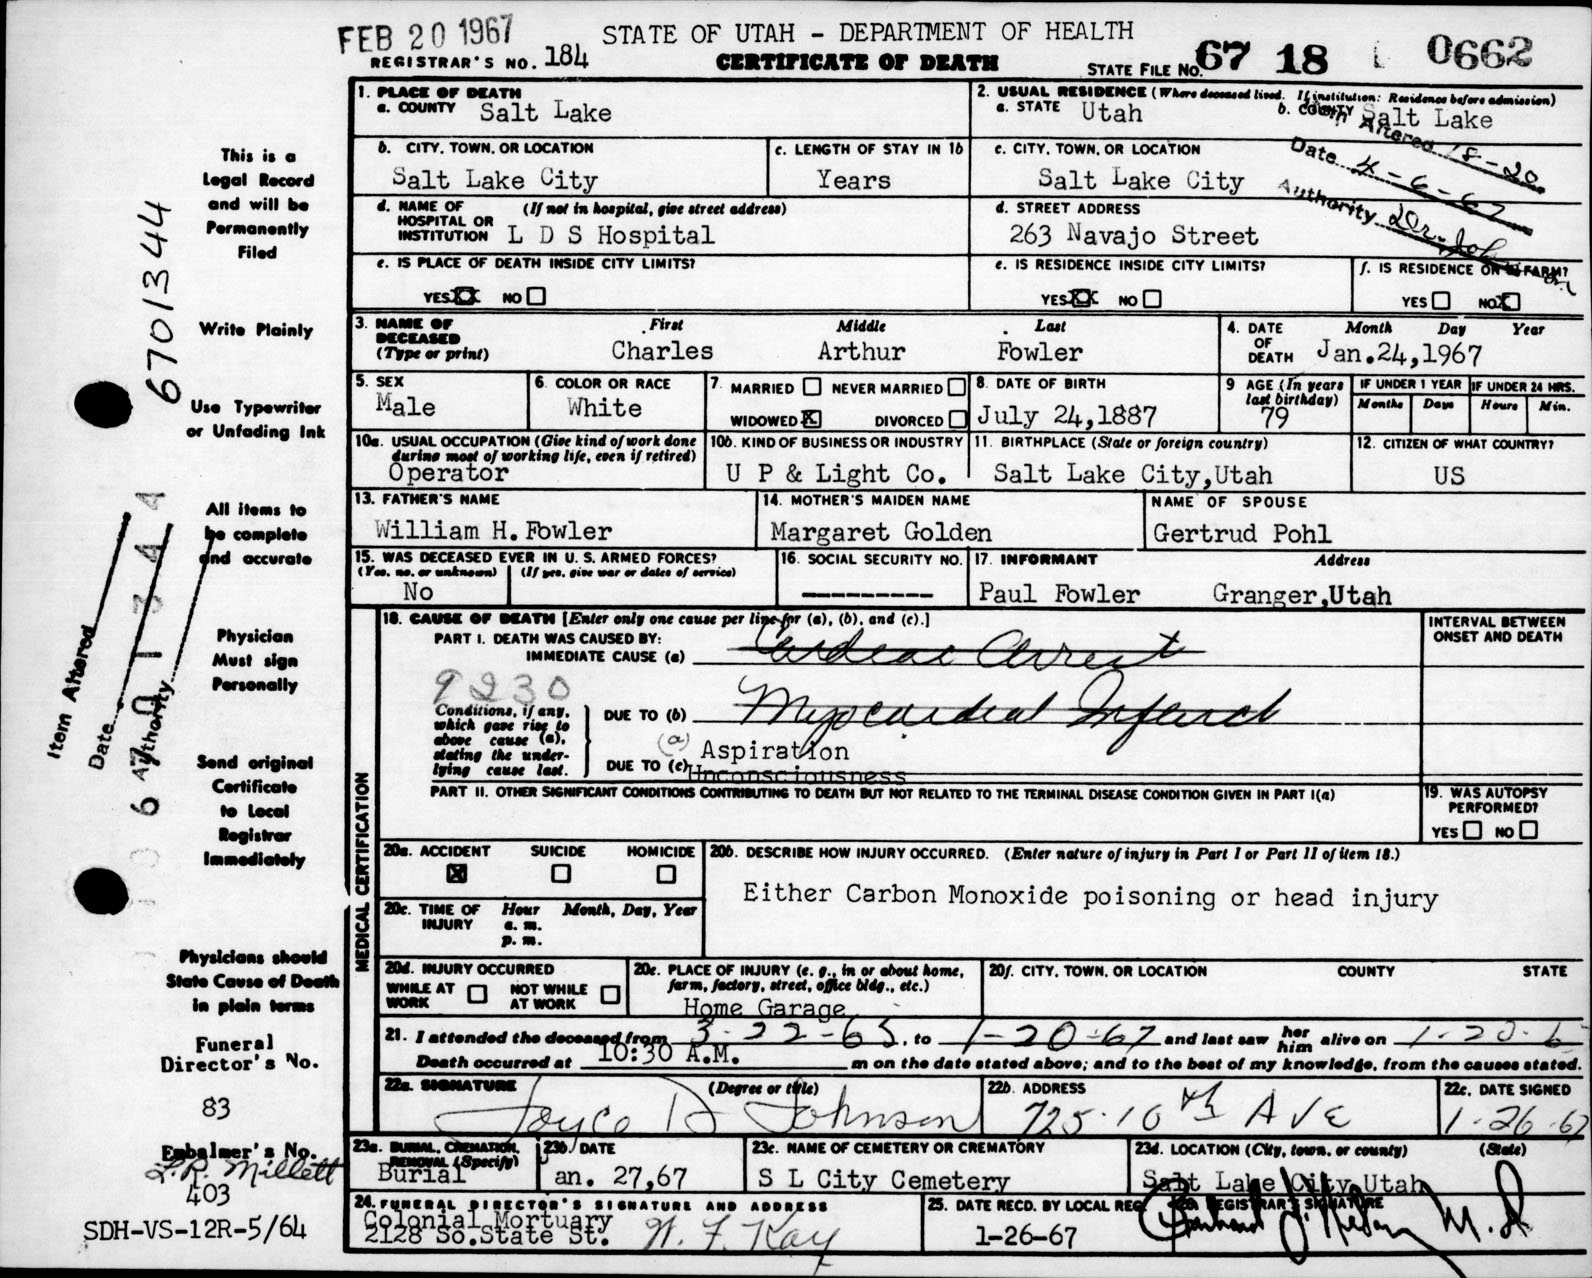 FEB 20 1967
STATE OF UTAH - DEPARTMENT OF HEALTH
REGISTRAR'S NO. 184
CERTIFICATE OF DEATH
STATE FILE NO. 67 18 0662
1. PLACE OF DEATH
a. COUNTY Salt Lake
2. USUAL RESIDENCE (Where deceased lived. If institution: Residence before admission)
a. STATE Utah b. COUNTY Salt Lake
Altered 18-20
Date 4-6-67
Authority Dr. Johnson
b. CITY, TOWN, OR LOCATION
Salt Lake City
c. LENGTH OF STAY IN 1b
Years
c. CITY, TOWN, OR LOCATION
Salt Lake City
d. NAME OF HOSPITAL OR INSTITUTION (If not in hospital, give street address)
L D S Hospital
d. STREET ADDRESS
263 Navajo Street
e. IS PLACE OF DEATH INSIDE CITY LIMITS?
YES NO
e. IS RESIDENCE INSIDE CITY LIMITS?
YES NO
f. IS RESIDENCE ON A FARM?
YES NO
3. NAME OF DECEASED (Type or print)
First Middle Last
Charles Arthur Fowler
4. DATE OF DEATH Month Day Year
Jan.24,1967
5. SEX
Male
6. COLOR OR RACE
White
7. MARRIED NEVER MARRIED
WIDOWED X DIVORCED
8. DATE OF BIRTH
July 24,1887
9 AGE (In years last birthday)
79
IF UNDER 1 YEAR
Months Days
IF UNDER 24 HRS.
Hours Min.
10a. USUAL OCCUPATION (Give kind of work done during most of working life, even if retired)
Operator
10b. KIND OF BUSINESS OR INDUSTRY
U P & Light Co.
11. BIRTHPLACE (State or foreign country)
Salt Lake City,Utah
12. CITIZEN OF WHAT COUNTRY?
US
13. FATHER'S NAME
William H.Fowler
14. MOTHER'S MAIDEN NAME
Margaret Golden
NAME OF SPOUSE
Gertrud Pohl
15. WAS DECEASED EVER IN U.S. ARMED FORCES?
(Yes, no, or unknown) (If yes, give war or dates of service)
No
16. SOCIAL SECURITY NO.
---------
17. INFORMANT Address
Paul Fowler Granger,Utah
MEDICAL CERTIFICATION
18. CAUSE OF DEATH [Enter only one cause per line for (a), (b), and (c).]
PART I. DEATH WAS CAUSED BY:
IMMEDIATE CAUSE (a) Cardiac Arrest
9230
Conditions, if any, which gave rise to above cause (a), stating the underlying cause last.
DUE TO (b) Myocardial Infarct
(a) Aspiration
DUE TO (c) Unconsciousness
INTERVAL BETWEEN ONSET AND DEATH
PART II. OTHER SIGNIFICANT CONDITIONS CONTRIBUTING TO DEATH BUT NOT RELATED TO THE TERMINAL DISEASE CONDITION GIVEN IN PART I(a)
19. WAS AUTOPSY PERFORMED?
YES NO
20a. ACCIDENT SUICIDE HOMICIDE
X
20b. DESCRIBE HOW INJURY OCCURRED. (Enter nature of injury in Part I or Part II of item 18.)
Either Carbon Monoxide poisoning or head injury
20c. TIME OF INJURY Hour Month, Day, Year
a. m.
p. m.
20d. INJURY OCCURRED
WHILE AT WORK NOT WHILE AT WORK
20e. PLACE OF INJURY (e. g., in or about home, farm, factory, street, office bldg., etc.)
Home Garage
20f. CITY, TOWN, OR LOCATION COUNTY STATE
21. I attended the deceased from 3-22-65, to 1-20-67 and last saw her him alive on 1-20-6
Death occurred at 10:30 A.M. m on the date stated above; and to the best of my knowledge, from the causes stated.
22a. SIGNATURE (Degree or title)
Joyce D Johnson
22b. ADDRESS
725-10th AVE
22c. DATE SIGNED
1-26-67
23a. BURIAL, CREMATION, REMOVAL (Specify)
Burial
23b. DATE
an. 27,67
23c. NAME OF CEMETERY OR CREMATORY
S L City Cemetery
23d. LOCATION (City, town, or county) (State)
Salt Lake City,Utah
24. FUNERAL DIRECTOR'S SIGNATURE AND ADDRESS
Colonial Mortuary
2128 So.State St. W. F. Kay
25. DATE RECD. BY LOCAL REG.
1-26-67
26. REGISTRAR'S SIGNATURE
M.D.
6701344
This is a
Legal Record
and will be
Permanently
Filed
Write Plainly
Use Typewriter
or Unfading Ink
All items to
be complete
and accurate
Item Altered
Date
Authority
Physician
Must sign
Personally
Send original
Certificate
to Local
Registrar
Immediately
Physicians should
State Cause of Death
in plain terms
Funeral
Director's No.
83
Embalmer's No.
L.R. Millett
403
SDH-VS-12R-5/64